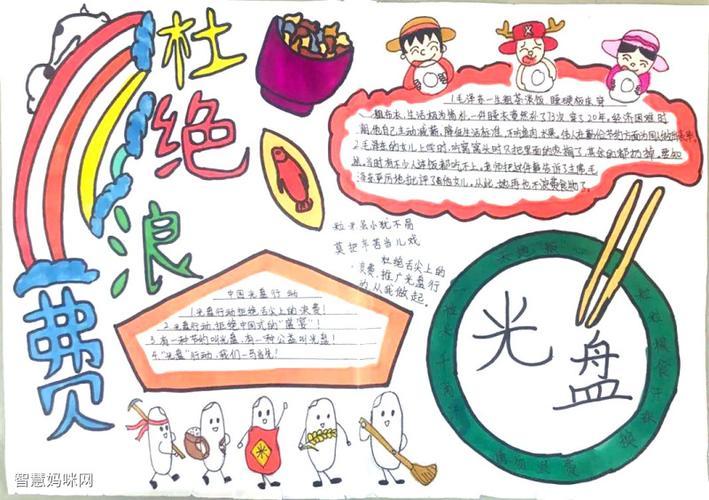 杜绝浪费
1.毛泽东一生粗茶淡饭 睡硬板床 穿
粗布衣,生活极为简朴,一件睡衣竟然补了73次穿了20年,经济困难时
期,他自己主动减薪,降低生活标准,不吃鱼肉、水果。
2.毛泽东的女儿上学时,
当时有不少人连饭都吃不上,老师把这件事告诉了主席,毛
泽东严厉地批评了她女儿,从此,她再也不浪费食物了。
粒米虽小犹不易
莫把辛苦当儿戏
杜绝舌尖上的
浪费,推广光盘行
动从我做起。
中国光盘行动
1.光盘行动拒绝舌尖上的浪费!
2.光盘行动,拒绝中国式的"盛宴"!
3.有一种节约叫光盘,有一种公益叫光盘!
4."光盘"行动,我们一马当先!
光盘
智慧妈咪网